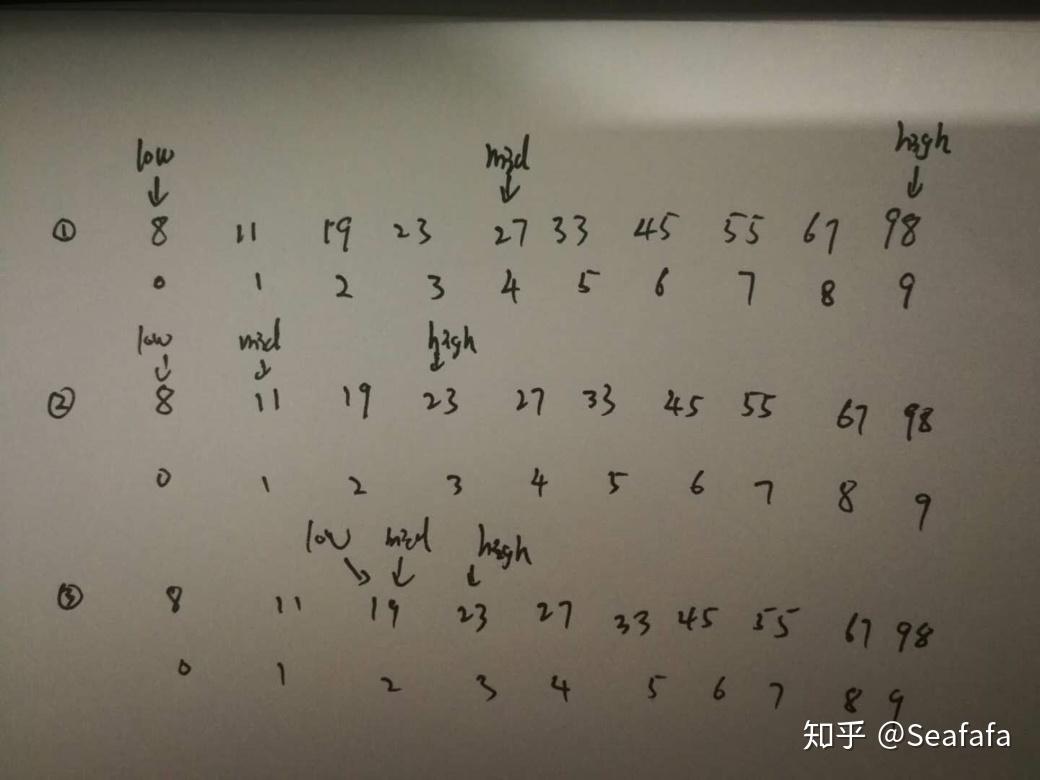 low mid high
① 8 11 19 23 27 33 45 55 67 98
0 1 2 3 4 5 6 7 8 9
low mid high
② 8 11 19 23 27 33 45 55 67 98
0 1 2 3 4 5 6 7 8 9
low mid high
③ 8 11 19 23 27 33 45 55 67 98
0 1 2 3 4 5 6 7 8 9
知乎 @Seafafa